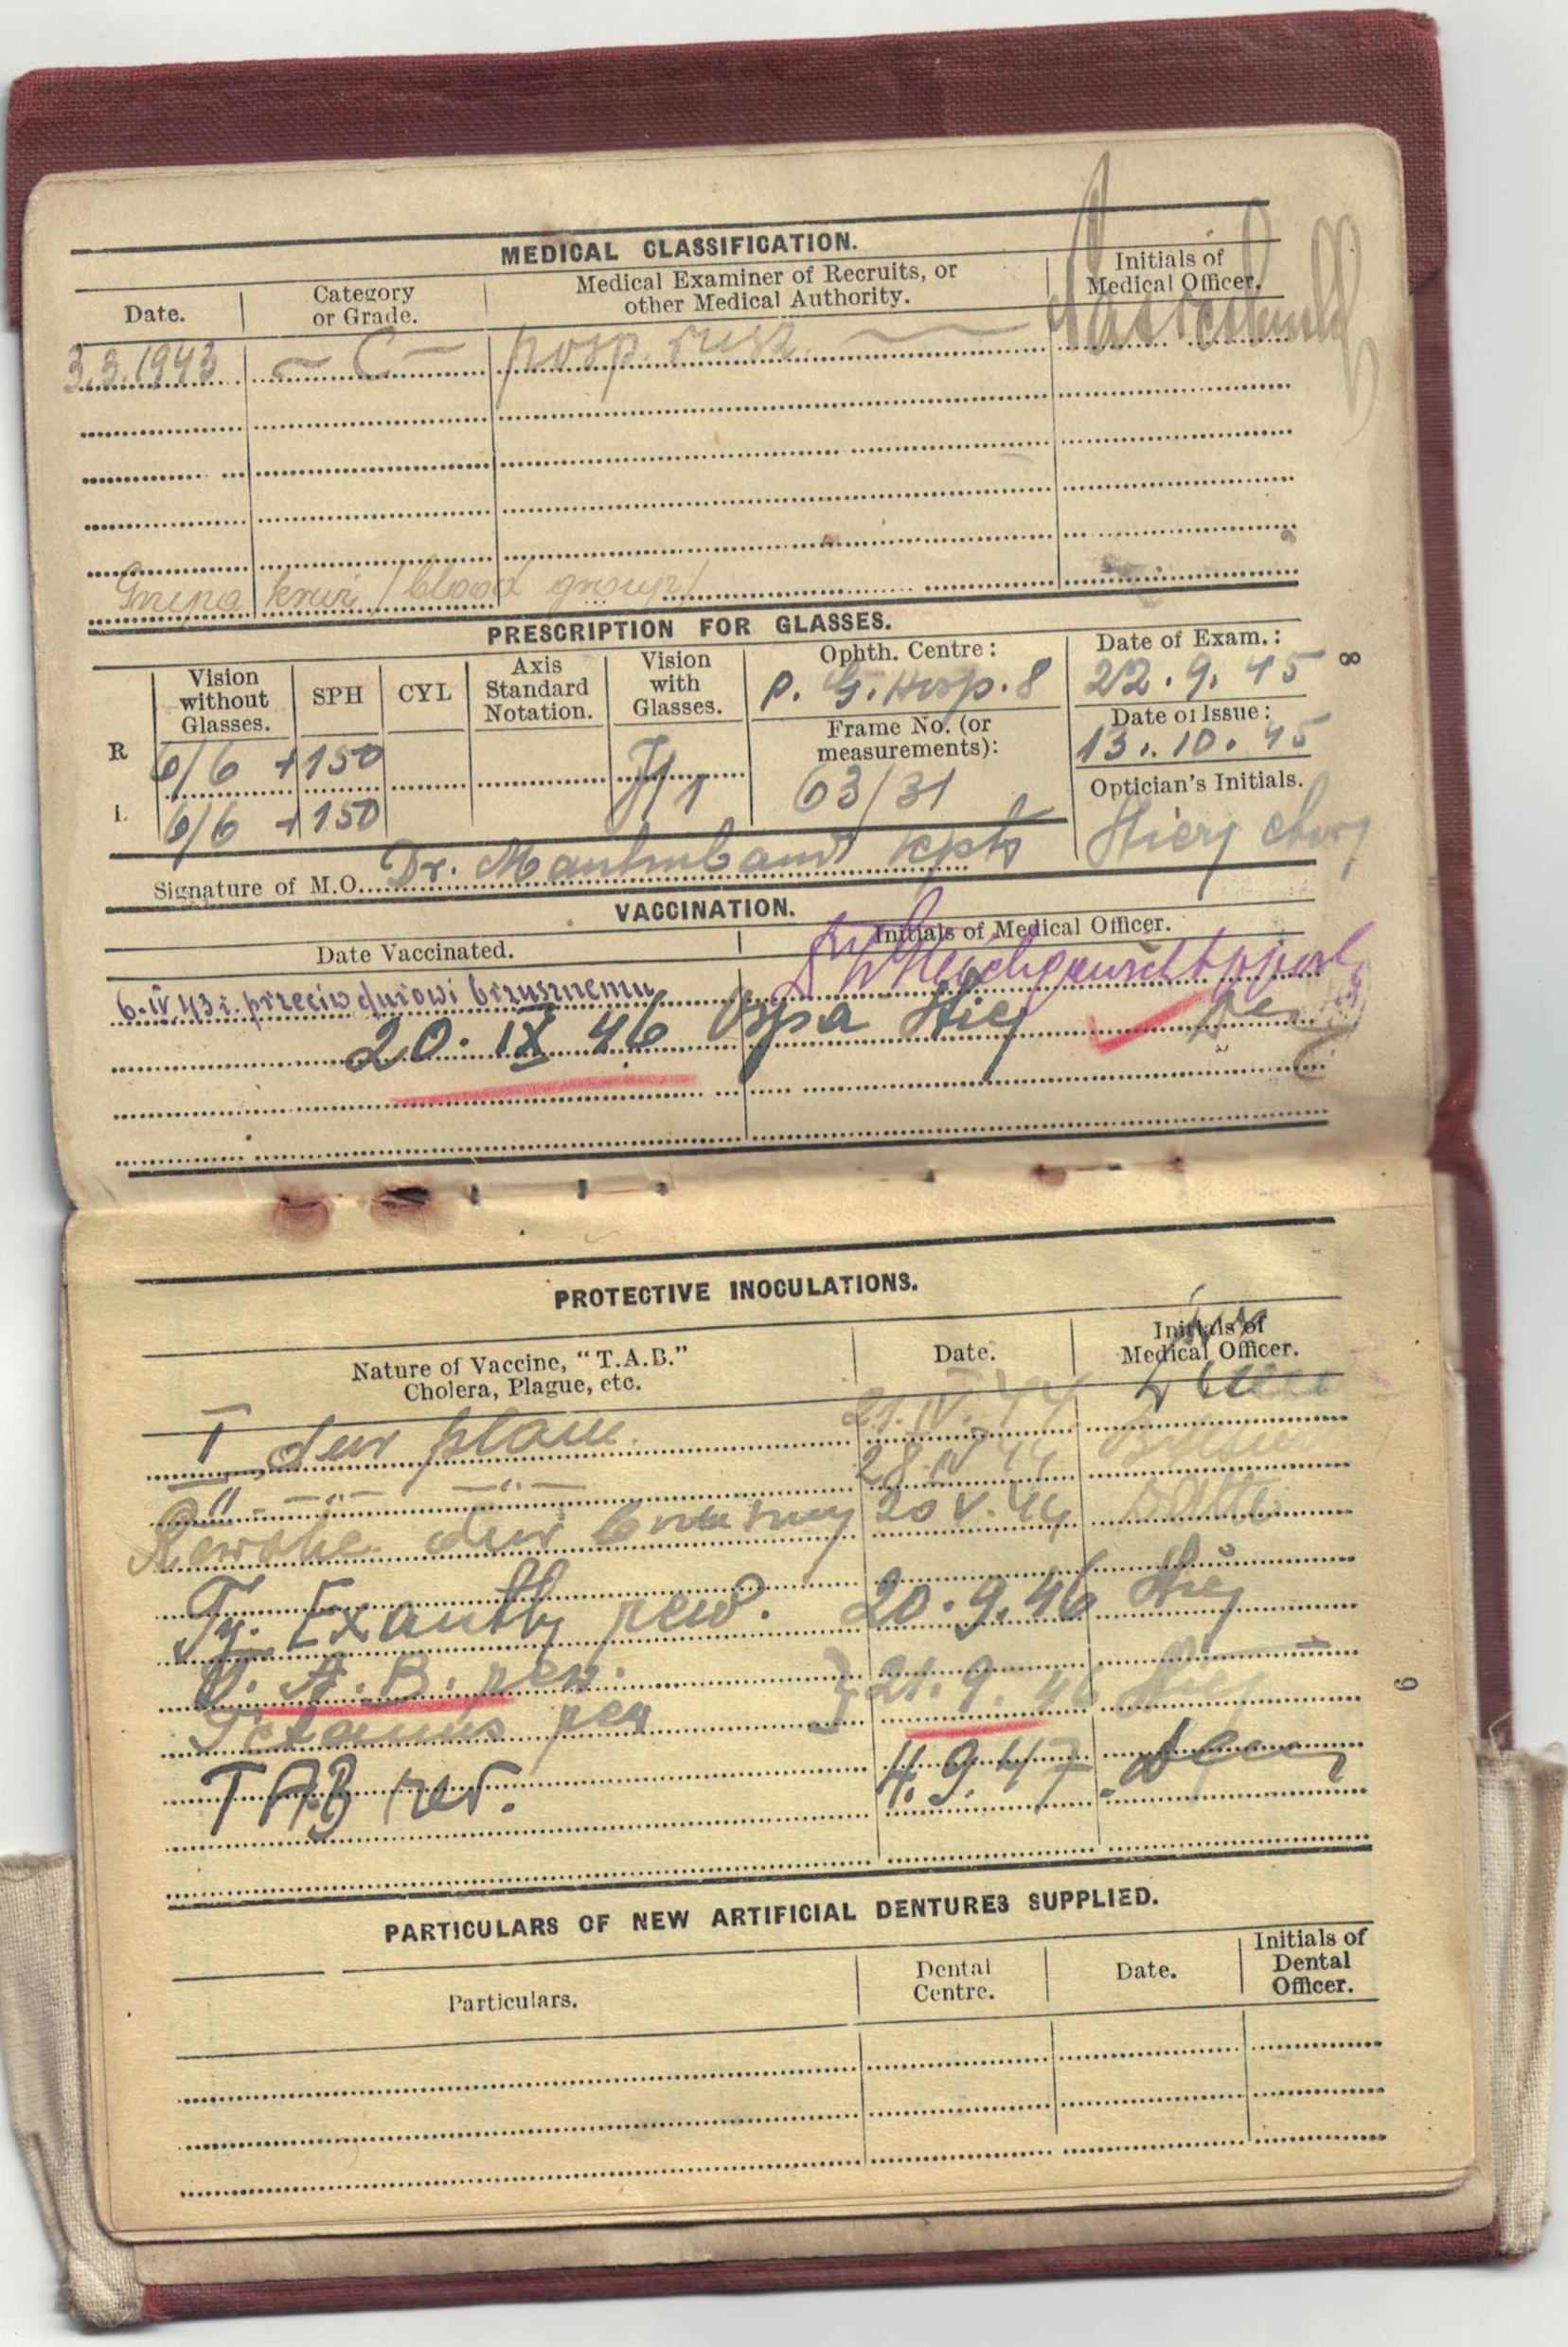 MEDICAL CLASSIFICATION.
Date.
Category or Grade.
Medical Examiner of Recruits, or other Medical Authority.
Initials of Medical Officer.
3.3.1943 — C —
Grupa krwi /blood group/
PRESCRIPTION FOR GLASSES.
8
Vision without Glasses.
SPH
CYL
Axis Standard Notation.
Vision with Glasses.
Ophth. Centre:
P. G. Hosp. 8
Date of Exam.:
22.9.45
Frame No. (or measurements):
63/31
Date of Issue:
13.10.45
Optician's Initials.
R 6/6 +150
L 6/6 +150
Signature of M.O. Dr.
VACCINATION.
Date Vaccinated.
Initials of Medical Officer.
6.IV.43 r. przeciw durowi brzusznemu
20.IX 46 Ospa
PROTECTIVE INOCULATIONS.
Nature of Vaccine, "T.A.B." Cholera, Plague, etc.
Date.
Initials of Medical Officer.
I dur plam. 21.IV.44
II —"— —"— 28.IV 44
dur 20 V.44
Ty. Exanth rew. 20.9.46
T.A.B. rew. } 21.9.46
Tetanus rew
TAB rev. 4.9.47
9
PARTICULARS OF NEW ARTIFICIAL DENTURES SUPPLIED.
Particulars.
Dental Centre.
Date.
Initials of Dental Officer.